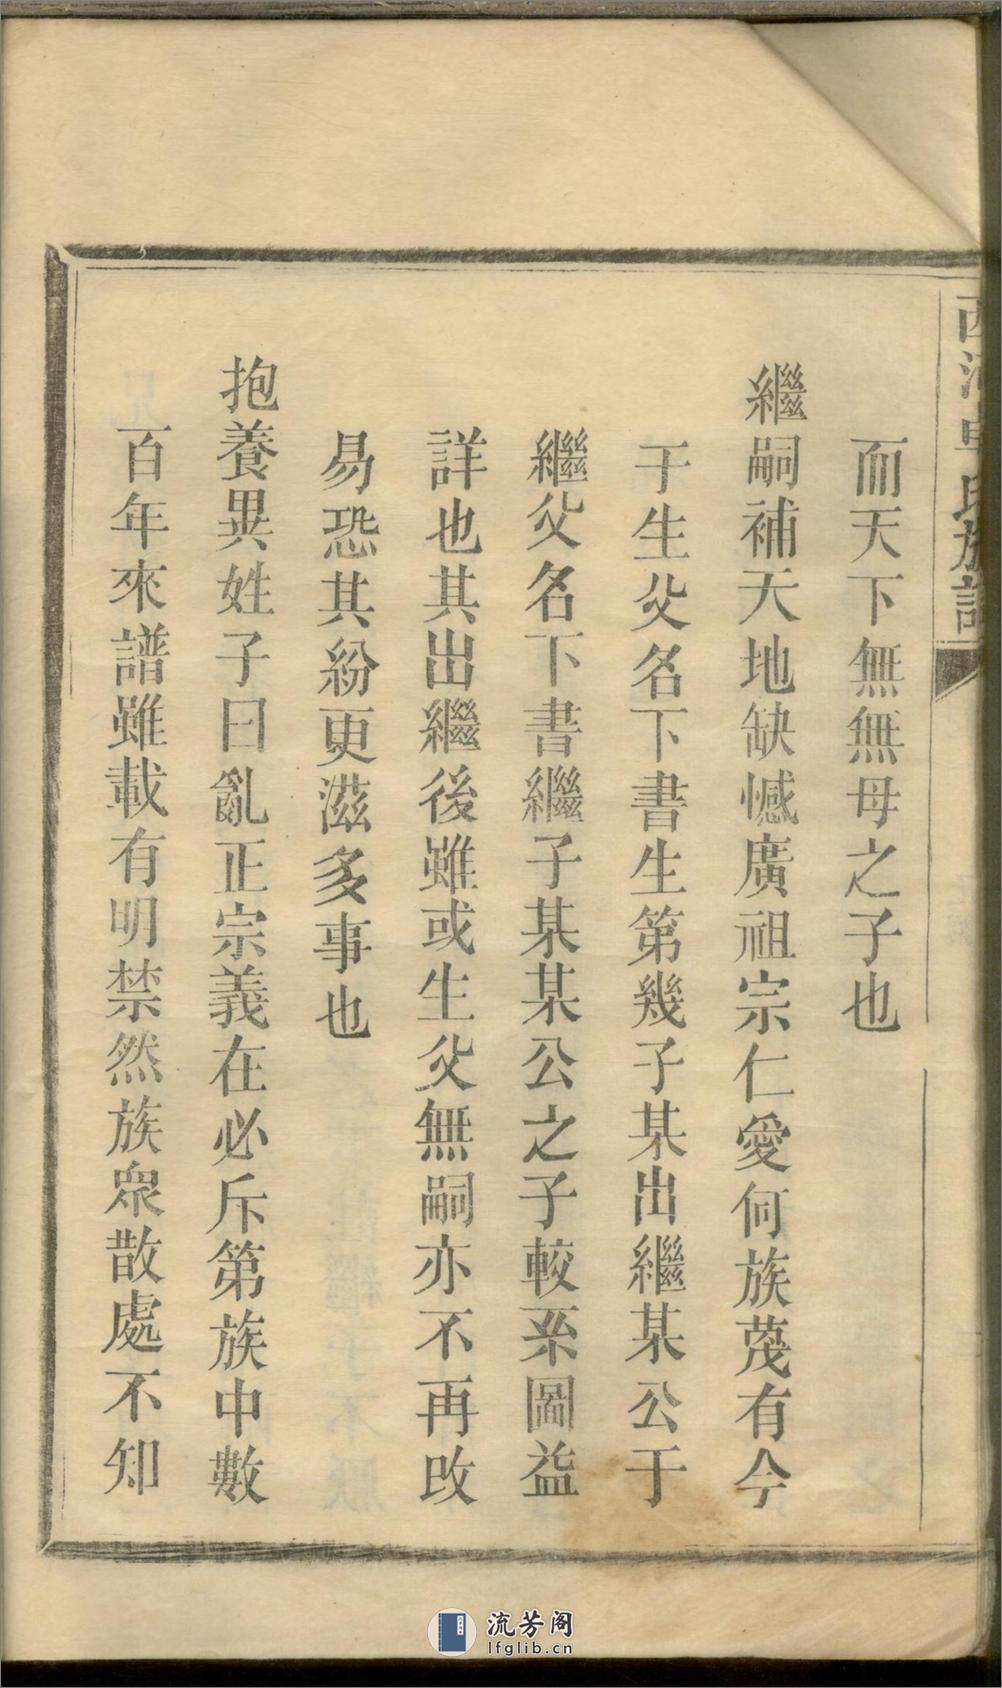 西河卓氏族譜
而天下無無母之子也
繼嗣補天地缺憾廣祖宗仁愛何族蔑有今
于生父名下書生第幾子某出繼某公于
繼父名下書繼子某某公之子較系圖益
詳也其出繼後雖或生父無嗣亦不再改
易恐其紛更滋多事也
抱養異姓子曰亂正宗義在必斥第族中數
百年來譜雖載有明禁然族衆散處不知
流芳阁
lfglib.cn